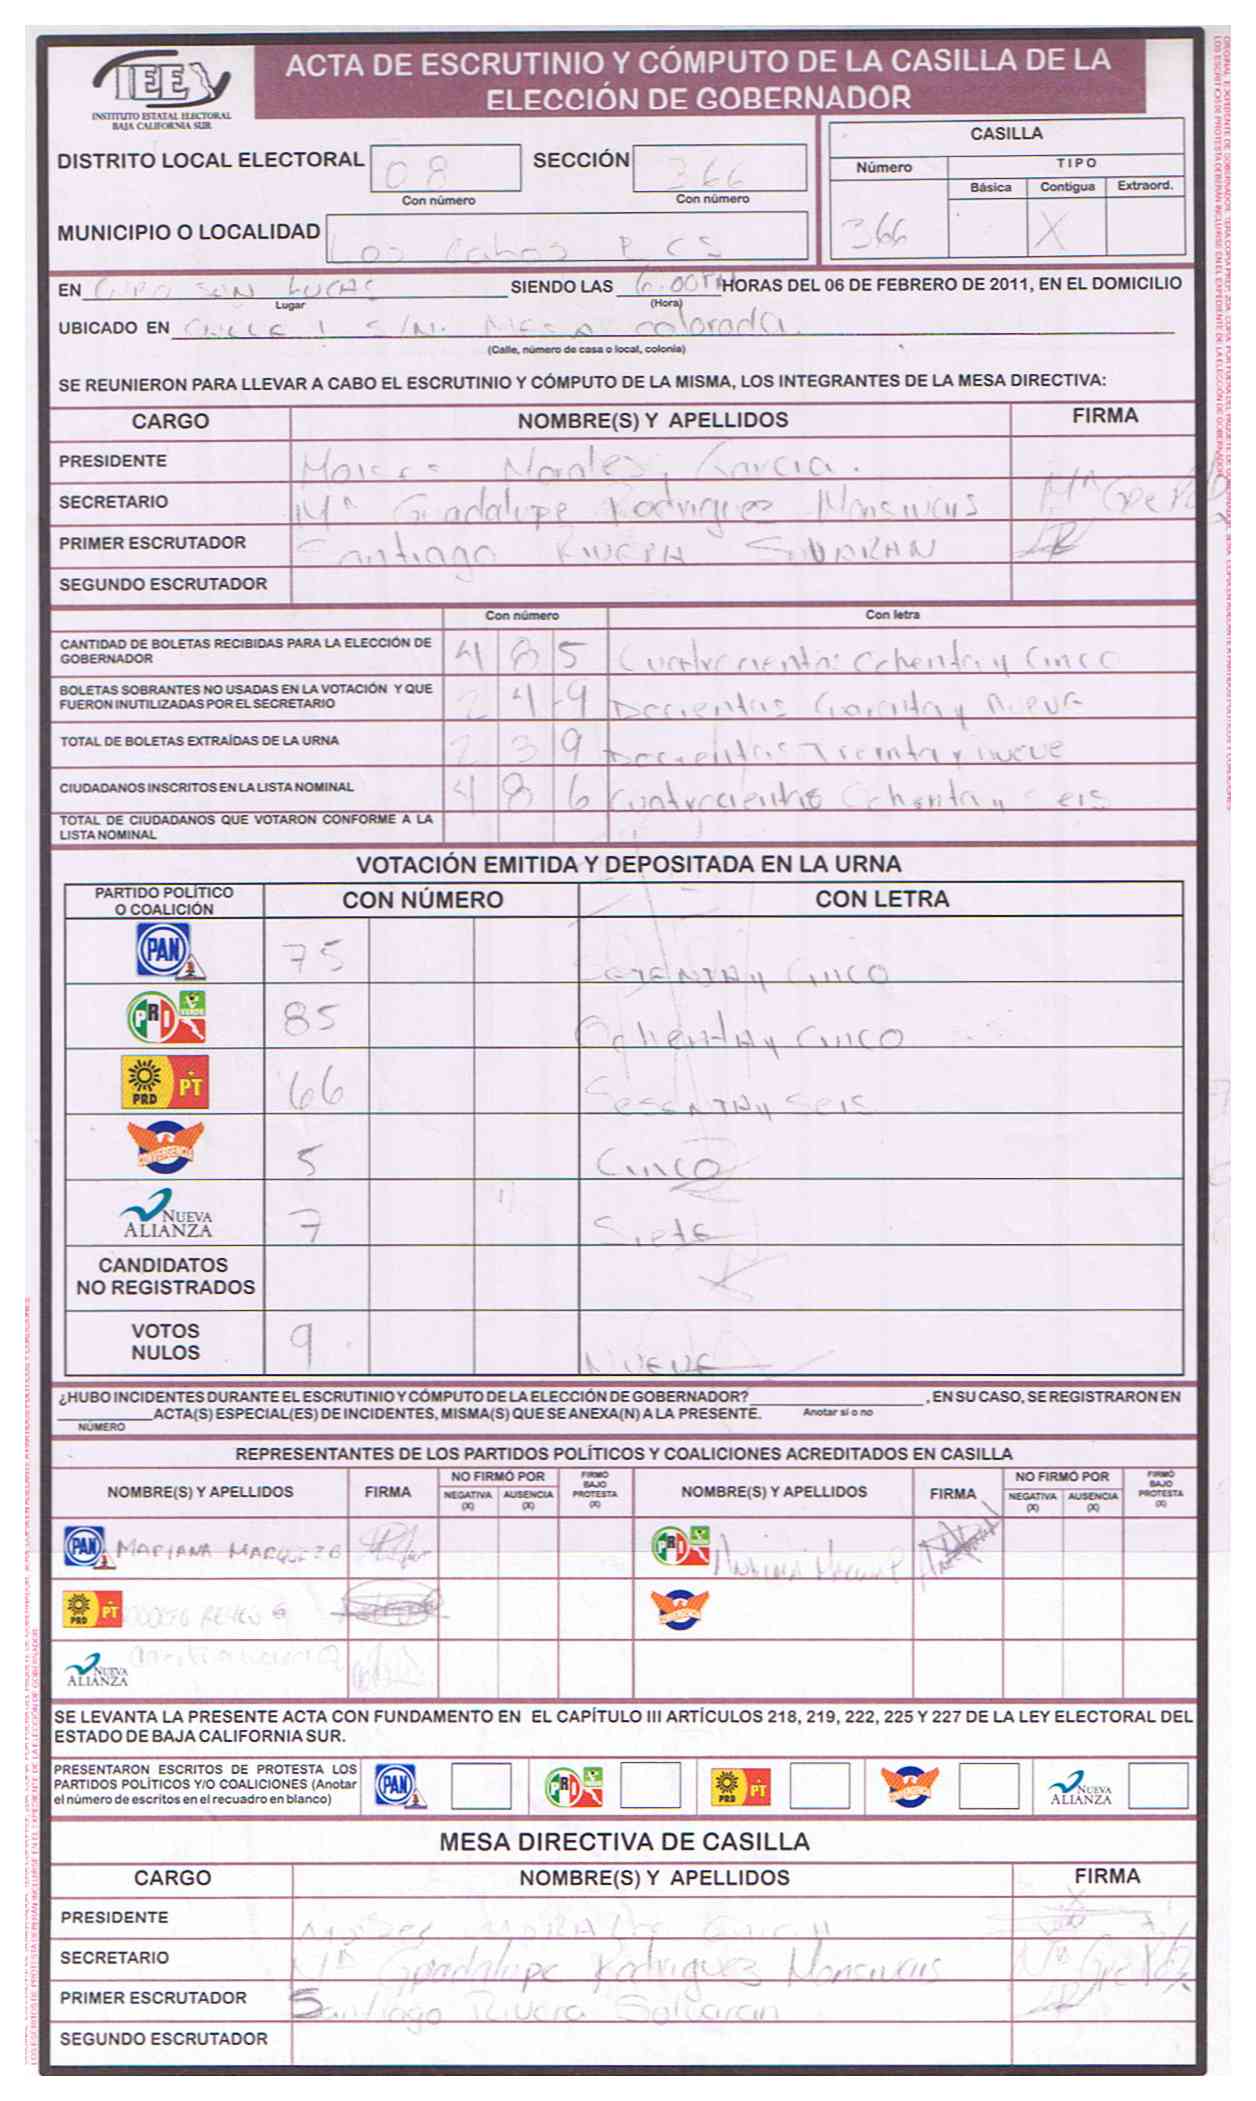 IEE
INSTITUTO ESTATAL ELECTORAL
BAJA CALIFORNIA SUR
ACTA DE ESCRUTINIO Y CÓMPUTO DE LA CASILLA DE LA
ELECCIÓN DE GOBERNADOR
DISTRITO LOCAL ELECTORAL 08 SECCIÓN 366
Con número Con número
MUNICIPIO O LOCALIDAD Los Cabos B C S
CASILLA
Número TIPO
Básica Contigua Extraord.
366 X
EN Cabo San Lucas SIENDO LAS 6:00 PM HORAS DEL 06 DE FEBRERO DE 2011, EN EL DOMICILIO
Lugar (Hora)
UBICADO EN Calle 1 S/N. Mesa colorada
(Calle, número de casa o local, colonia)
SE REUNIERON PARA LLEVAR A CABO EL ESCRUTINIO Y CÓMPUTO DE LA MISMA, LOS INTEGRANTES DE LA MESA DIRECTIVA:
CARGO NOMBRE(S) Y APELLIDOS FIRMA
PRESIDENTE Moises Morales Garcia.
SECRETARIO Mª Guadalupe Rodriguez Monsivais Mª Gpe
PRIMER ESCRUTADOR Santiago RIVERA
SEGUNDO ESCRUTADOR
Con número Con letra
CANTIDAD DE BOLETAS RECIBIDAS PARA LA ELECCIÓN DE
GOBERNADOR 4 8 5 Cuatrocientos Ochenta y Cinco
BOLETAS SOBRANTES NO USADAS EN LA VOTACIÓN Y QUE
FUERON INUTILIZADAS POR EL SECRETARIO 2 4 9 Docientas Cuarenta y Nueve
TOTAL DE BOLETAS EXTRAÍDAS DE LA URNA 2 3 9 Docientas Treinta y nueve
CIUDADANOS INSCRITOS EN LA LISTA NOMINAL 4 8 6 Cuatrocientos Ochenta y Seis
TOTAL DE CIUDADANOS QUE VOTARON CONFORME A LA
LISTA NOMINAL
VOTACIÓN EMITIDA Y DEPOSITADA EN LA URNA
PARTIDO POLÍTICO
O COALICIÓN CON NÚMERO CON LETRA
PAN 75 SETENTA y CINCO
PRI VERDE 85 Ochenta y CINCO
PRD PT 66 SESENTA y SEIS
CONVERGENCIA 5 CINCO
NUEVA
ALIANZA 7 Siete
CANDIDATOS
NO REGISTRADOS
VOTOS
NULOS 9 NUEVE
¿HUBO INCIDENTES DURANTE EL ESCRUTINIO Y CÓMPUTO DE LA ELECCIÓN DE GOBERNADOR? , EN SU CASO, SE REGISTRARON EN
ACTA(S) ESPECIAL(ES) DE INCIDENTES, MISMA(S) QUE SE ANEXA(N) A LA PRESENTE. Anotar si o no
NÚMERO
REPRESENTANTES DE LOS PARTIDOS POLÍTICOS Y COALICIONES ACREDITADOS EN CASILLA
NOMBRE(S) Y APELLIDOS FIRMA NO FIRMÓ POR NEGATIVA (X) AUSENCIA (X) FIRMÓ BAJO PROTESTA (X) NOMBRE(S) Y APELLIDOS FIRMA NO FIRMÓ POR NEGATIVA (X) AUSENCIA (X) FIRMÓ BAJO PROTESTA (X)
PAN MARIANA MARQUEZ PRI
PRD PT CONVERGENCIA
NUEVA
ALIANZA
SE LEVANTA LA PRESENTE ACTA CON FUNDAMENTO EN EL CAPÍTULO III ARTÍCULOS 218, 219, 222, 225 Y 227 DE LA LEY ELECTORAL DEL
ESTADO DE BAJA CALIFORNIA SUR.
PRESENTARON ESCRITOS DE PROTESTA LOS
PARTIDOS POLÍTICOS Y/O COALICIONES (Anotar
el número de escritos en el recuadro en blanco) PAN PRI PRD PT CONVERGENCIA NUEVA ALIANZA
MESA DIRECTIVA DE CASILLA
CARGO NOMBRE(S) Y APELLIDOS FIRMA
PRESIDENTE Moises MORALES Garcia
SECRETARIO Mª Guadalupe Rodriguez Monsivais Mª Gpe
PRIMER ESCRUTADOR Santiago Rivera
SEGUNDO ESCRUTADOR